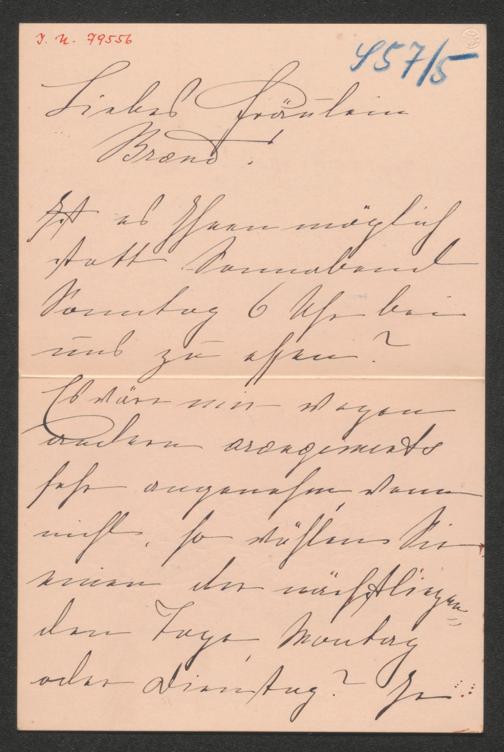 J. N. 79556
457/5
Liebes Fräulein
Brand!
Ist es Ihnen möglich
statt Sonnabend
Sonntag 6 Uhr bei
uns zu essen?
Es wäre mir wegen
andern arrangements
sehr angenehm, wenn
nicht, so wählen Sie
einen der nächstliegen=
den Tage, Montag
oder Dienstag?